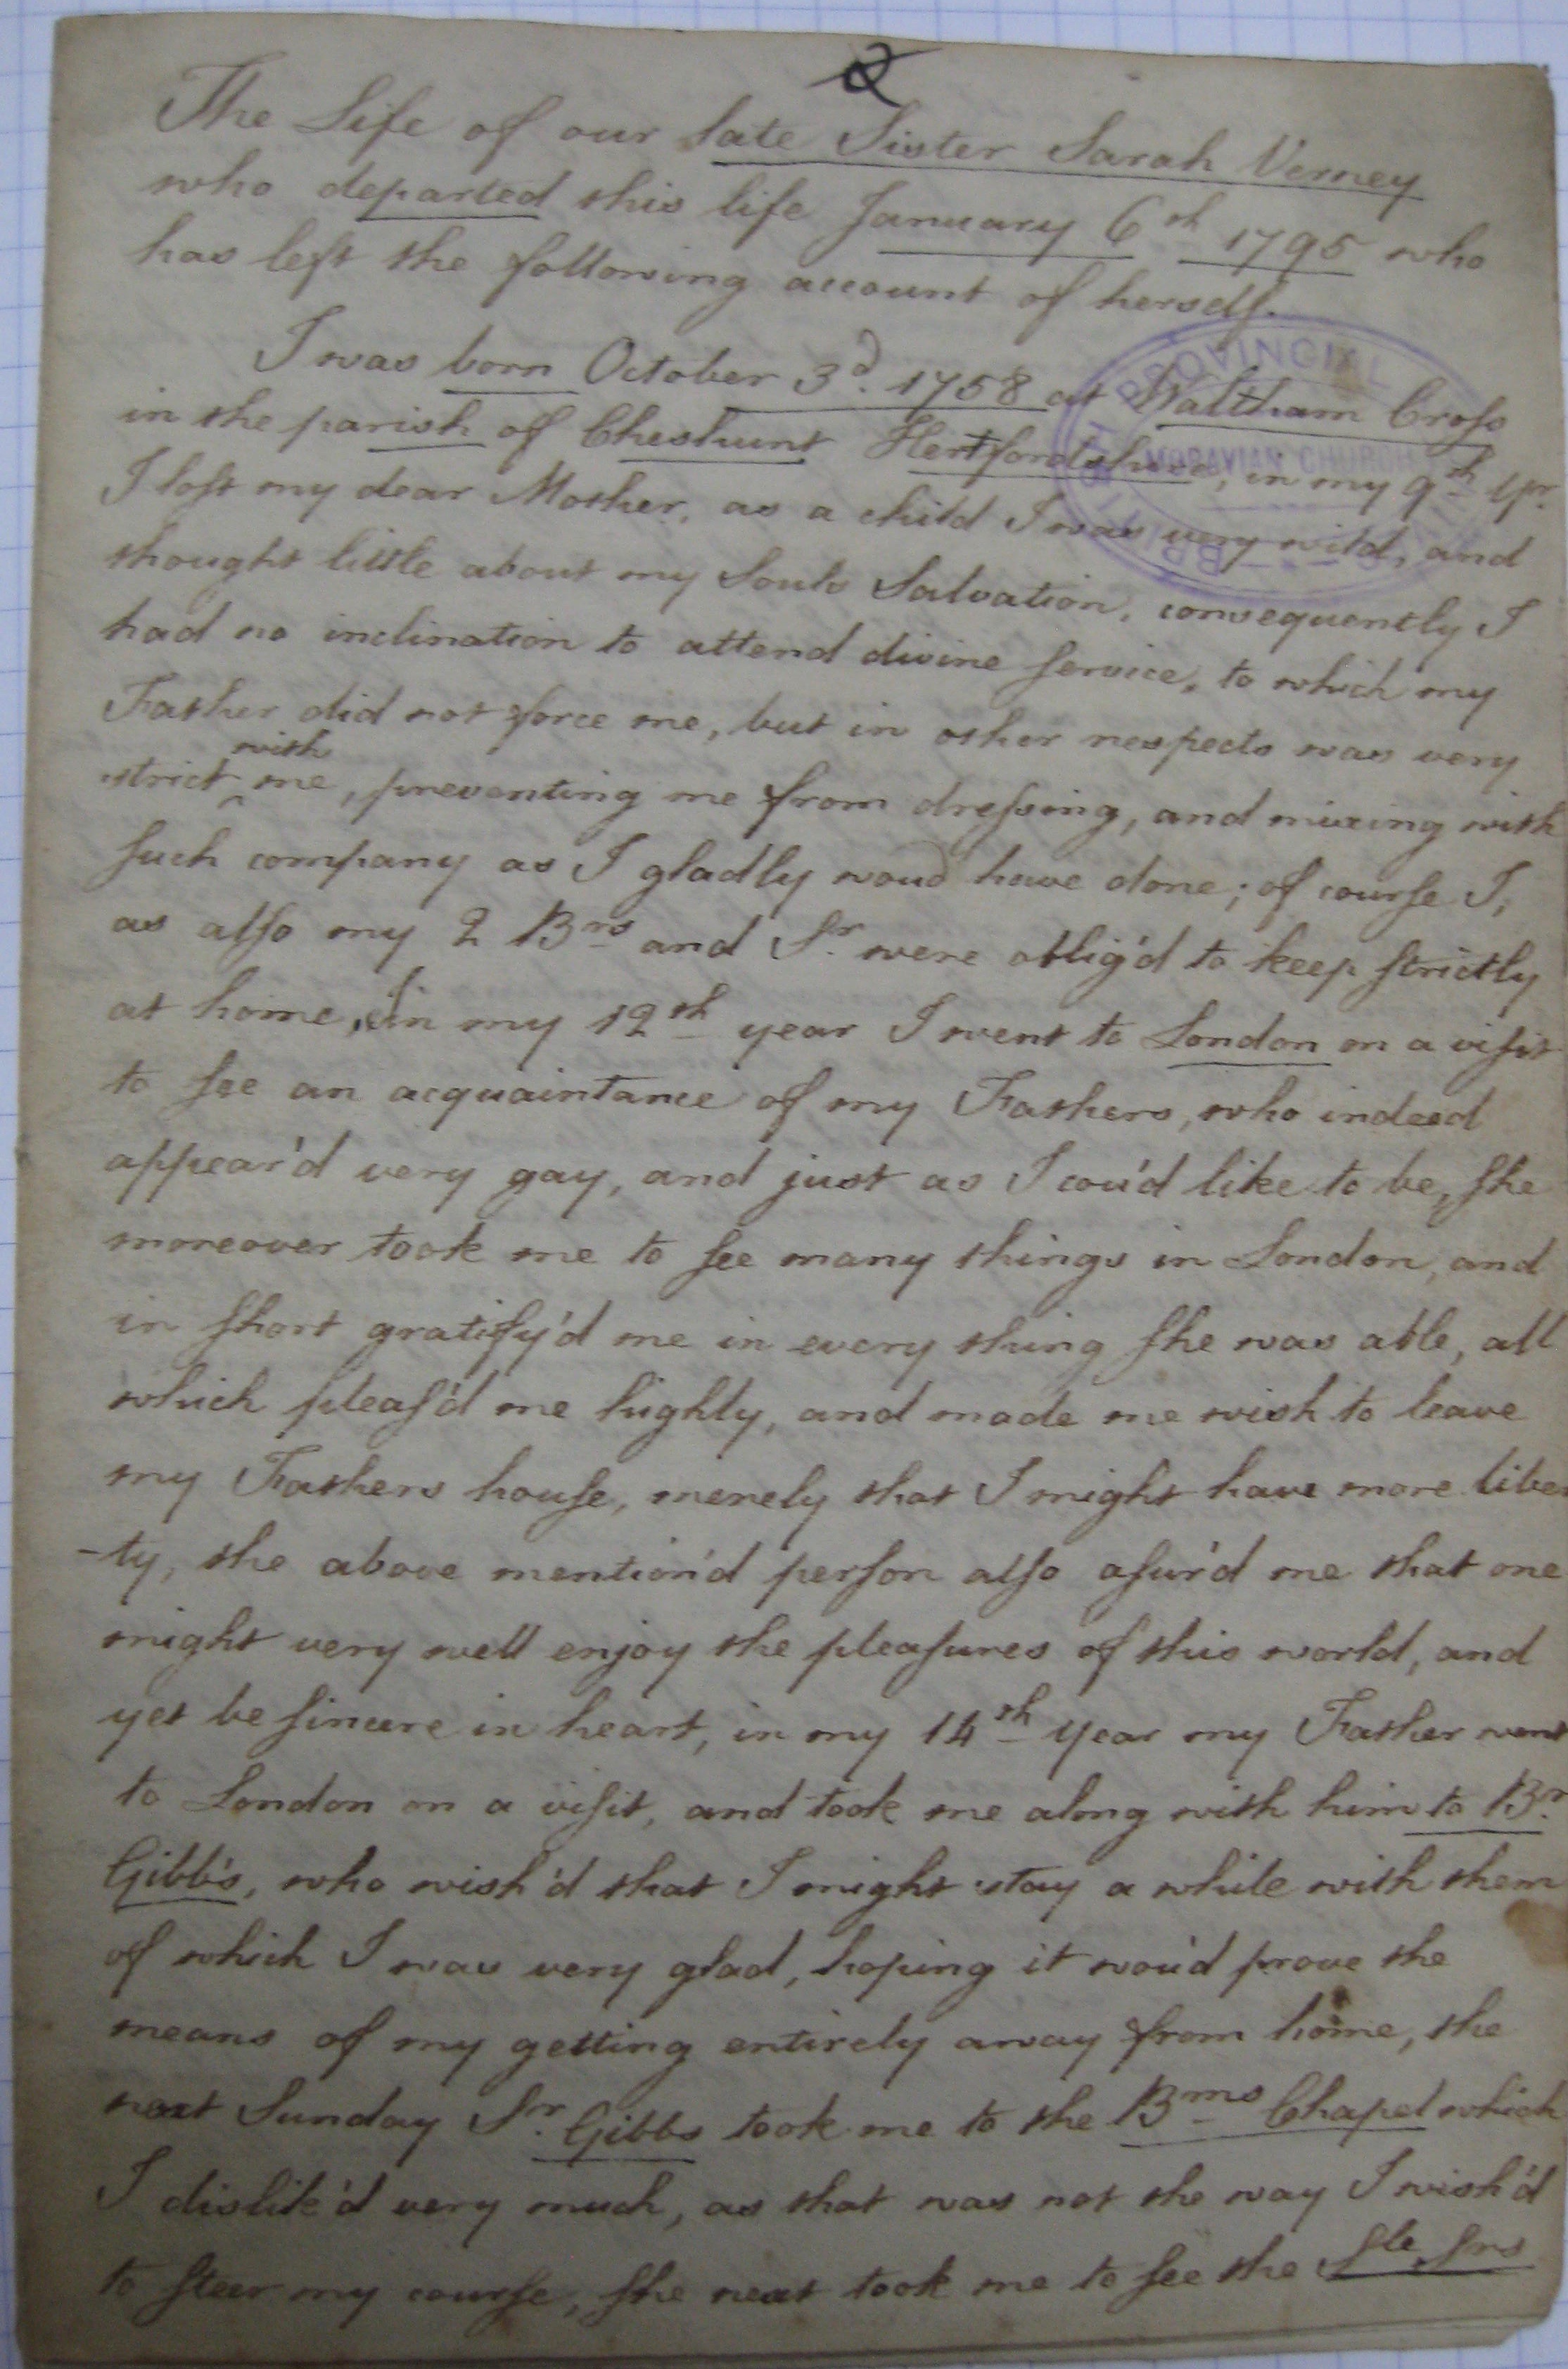 2
The Life of our late Sister Sarah Verney
who departed this life January 6th 1795 who
has left the following account of herself.
I was born October 3d. 1758 at Waltham Croſs
in the parish of Cheshunt Hertfordshire, in my 9th Yr.
I lost my dear Mother, as a child I was very wild, and
thought little about my Souls Salvation, consequently I
had no inclination to attend divine ſervice, to which my
Father did not force me, but in other respects was very
strict ^with me, preventing me from dreſsing, and mixing with
ſuch company as I gladly woud have done; of courſe I,
as alſo my 2 Brs and Sr. were oblig'd to keep ſtrictly
at home, In my 12th year I went to London on a viſit
to ſee an acquaintance of my Fathers, who indeed
appear'd very gay, and just as I cou'd like to be, ſhe
moreover took me to ſee many things in London, and
in ſhort gratify'd me in every thing ſhe was able, all
which pleaſ'd me highly, and made me wish to leave
my Fathers houſe, merely that I might have more liber
-ty, the above mention'd perſon alſo aſur'd me that one
might very well enjoy the pleaſures of this world, and
yet be ſincere in heart, in my 14th year my Father went
to London on a viſit, and took me along with him to Br.
Gibb's, who wish'd that I might stay a while with them
of which I was very glad, hoping it wou'd prove the
means of my getting entirely away from home, the
next Sunday Sr. Gibbs took me to the Brns Chapel which
I dislik'd very much, as that was not the way I wish'd
to ſteer my courſe, ſhe next took me to ſee the Sle Srs
PROVINCIAL
MORAVIAN CHURCH
BRITISH